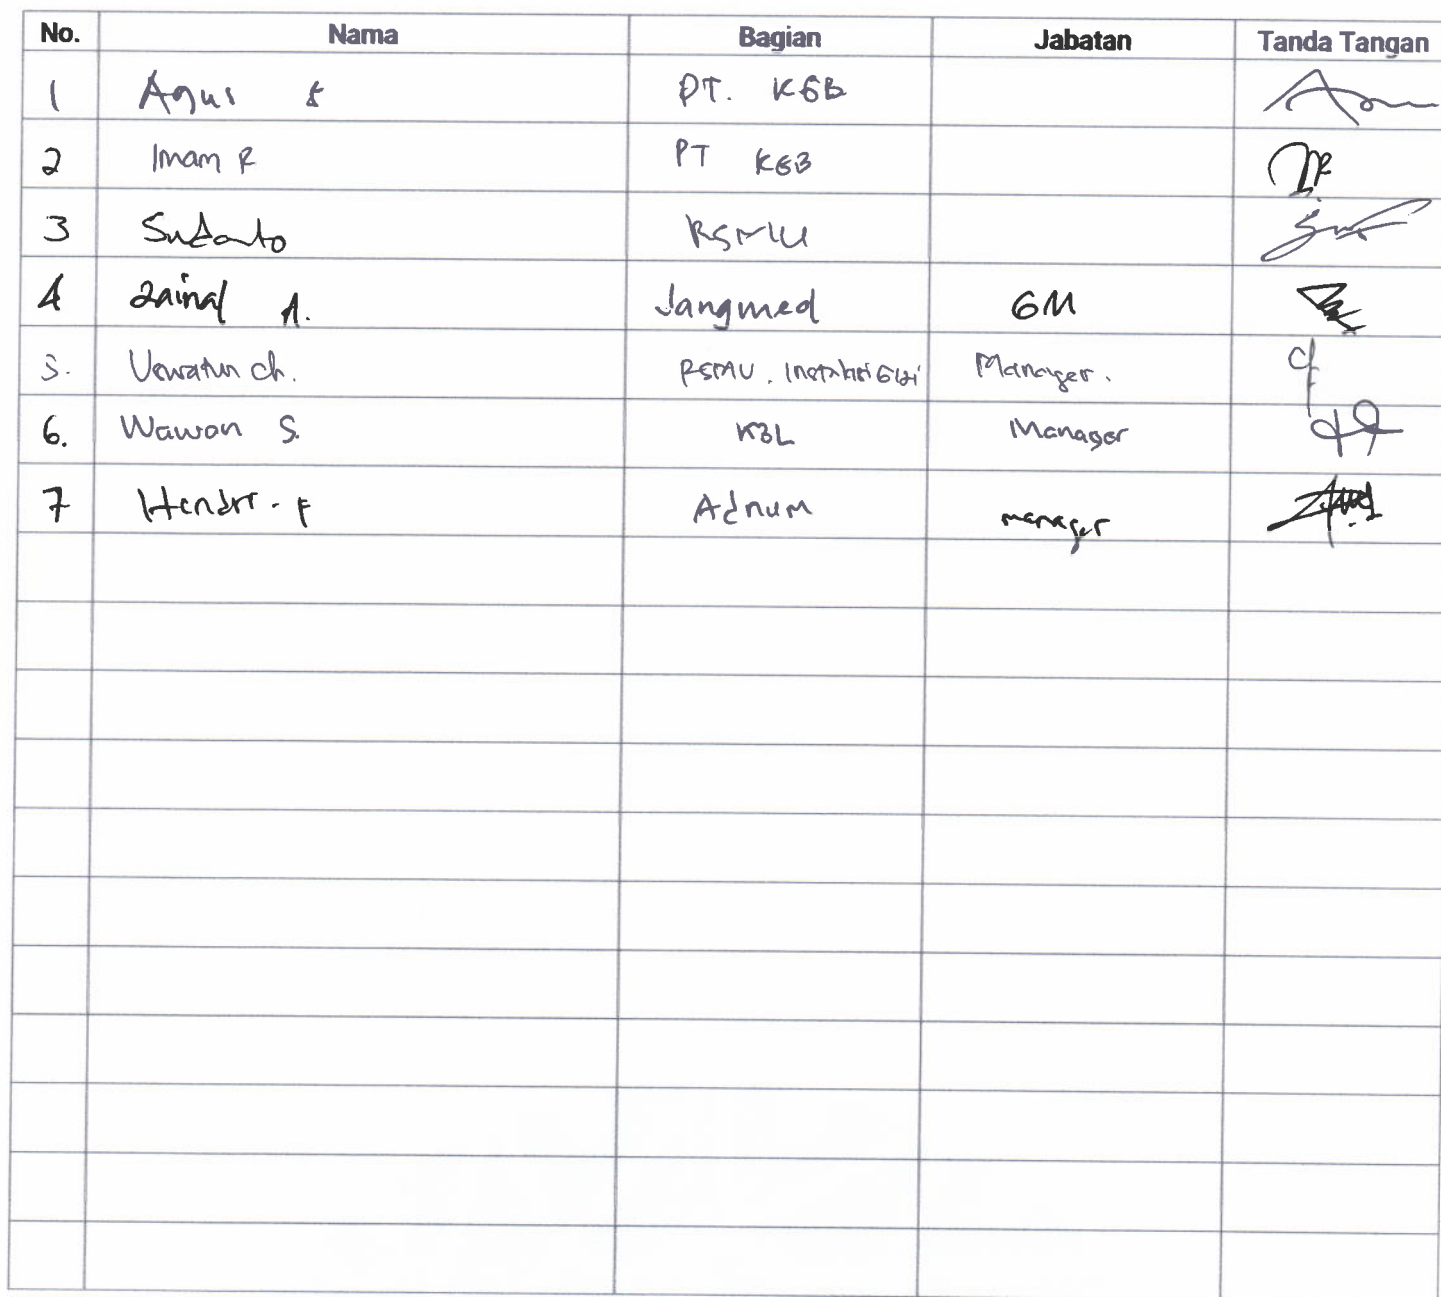 No. Nama Bagian Jabatan Tanda Tangan
1 Agus PT. KGB
2 Imam R PT KGB
3 RSMU
4 Zainal A. Jangmed GM
5. Uswatun ch. RSMU. Instalasi Gizi Manager.
6. Wawan S. K3L Manager
7 Hendri. F Adnum manager